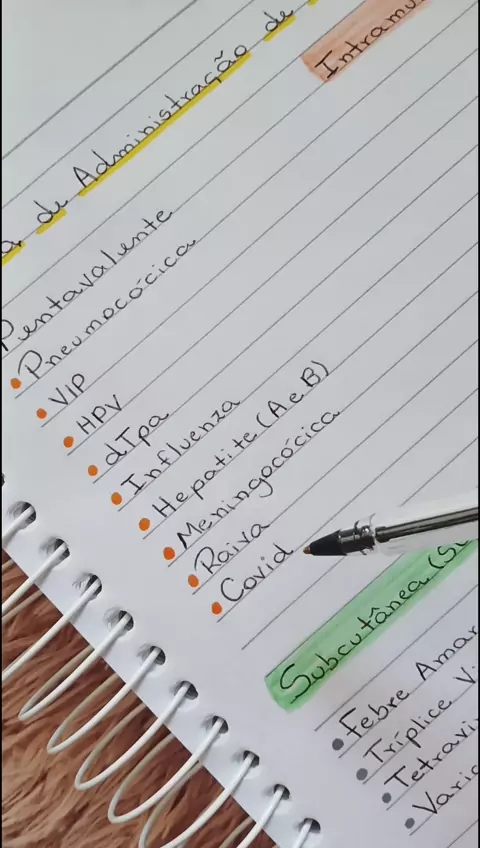 de Administração de
Intramu
Pentavalente
Pneumocócica
VIP
HPV
dTpa
Influenza
Hepatite (A e B)
Meningocócica
Raiva
Covid
Subcutânea (S
Febre Amar
Tríplice Vi
Tetravi
Vari